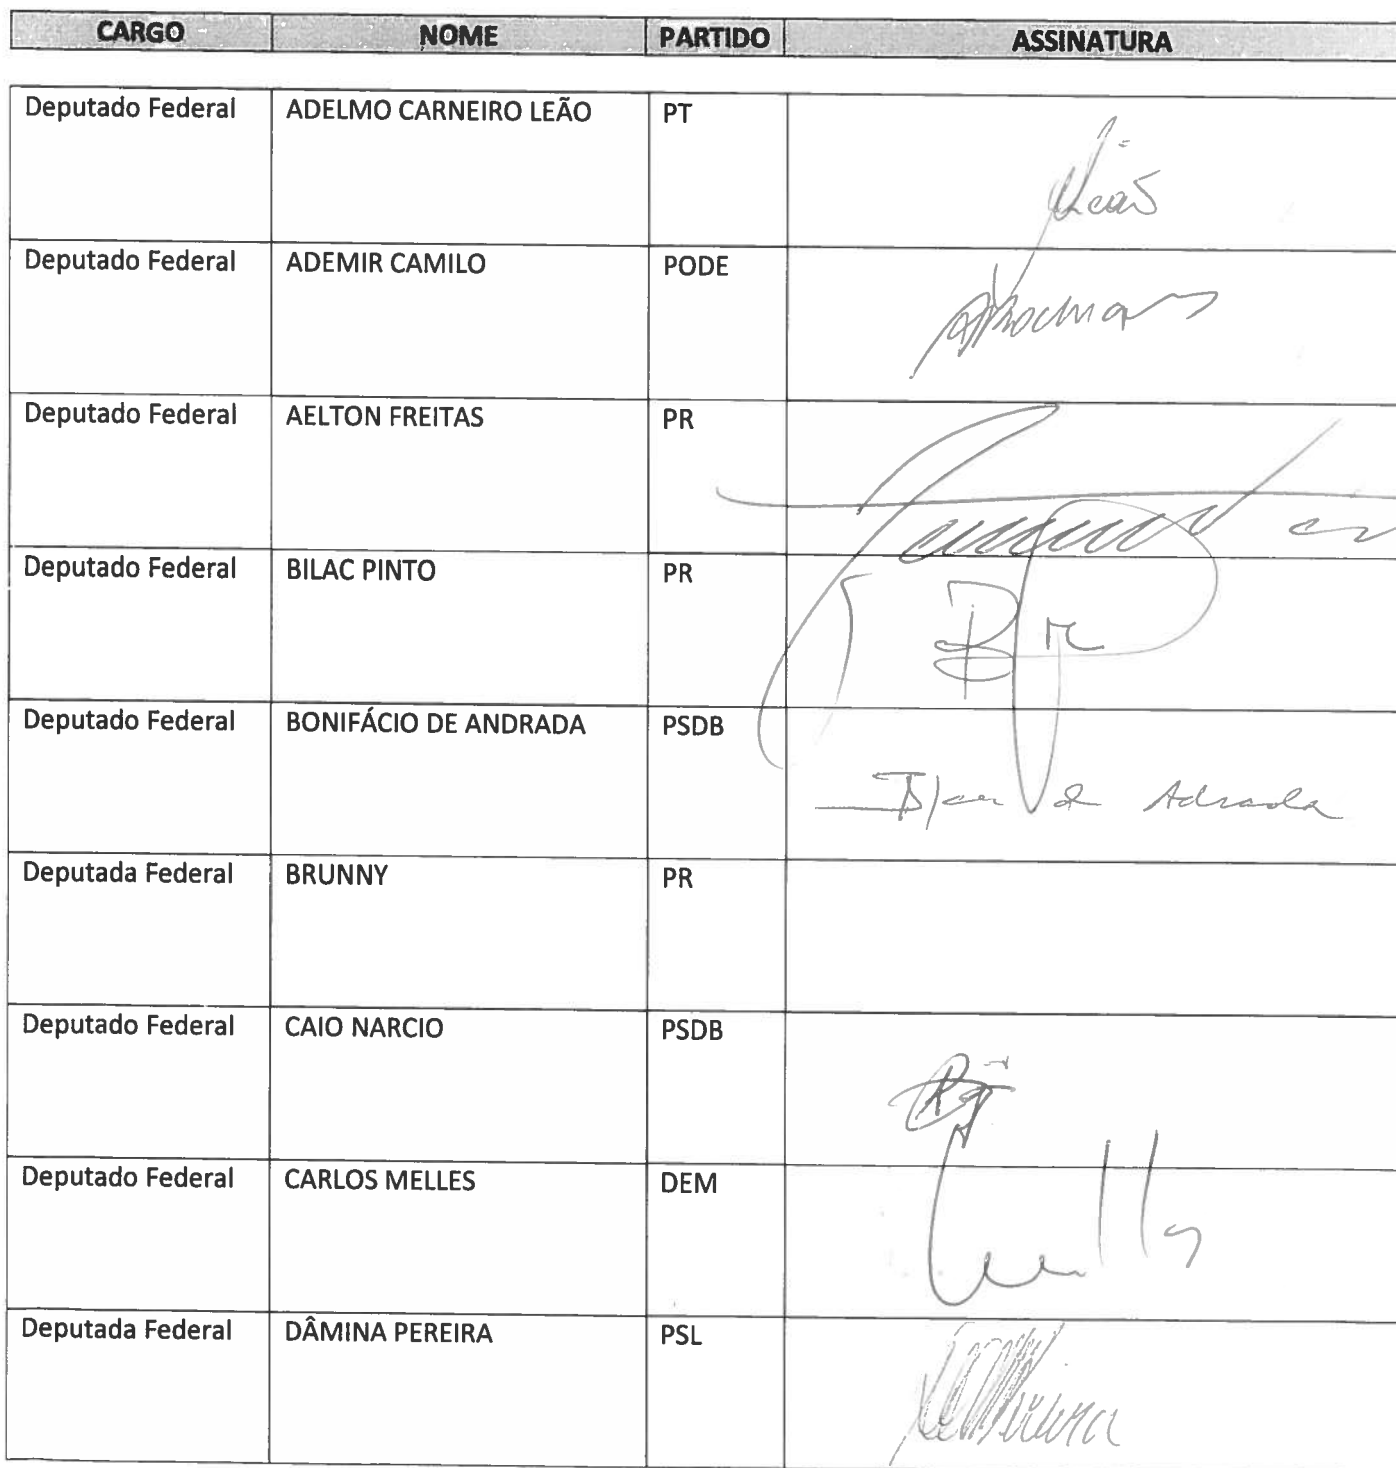 CARGO NOME PARTIDO ASSINATURA
Deputado Federal ADELMO CARNEIRO LEÃO PT
Leão
Deputado Federal ADEMIR CAMILO PODE
Deputado Federal AELTON FREITAS PR
Deputado Federal BILAC PINTO PR
Deputado Federal BONIFÁCIO DE ANDRADA PSDB
de Adrada
Deputada Federal BRUNNY PR
Deputado Federal CAIO NARCIO PSDB
Deputado Federal CARLOS MELLES DEM
Deputada Federal DÂMINA PEREIRA PSL